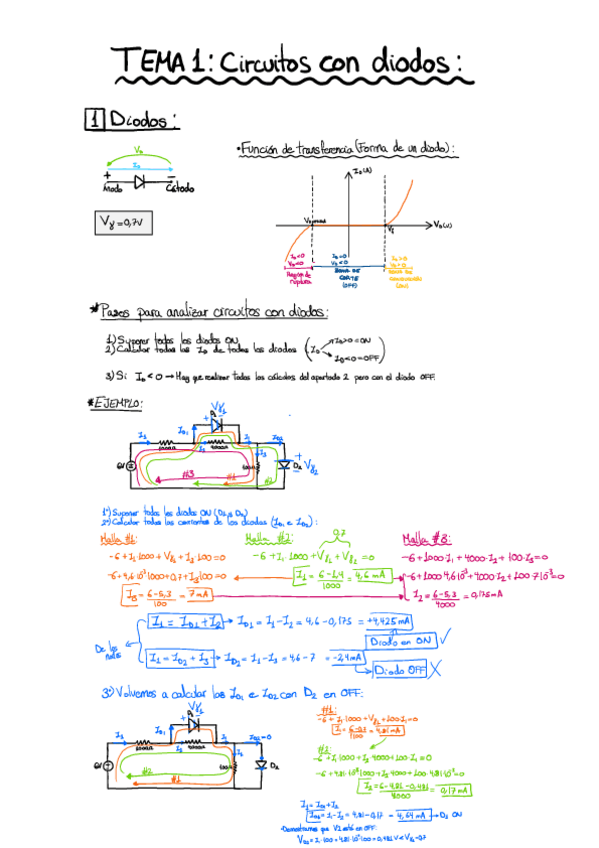 TEMA 1: Circuitos con diodos:
1 Diodos:
•Función de transferencia (Forma de un diodo):
I_D (A)
V_D
I_D
+ −
Ánodo Cátodo
Vγ=0,7V
V_D (V)
Vγ
I_D<0
V_D<0
Región de ruptura
I_D=0
V_D<0
ZONA DE CORTE (OFF)
I_D>0
V_D>0
(ON)
*Pasos para analizar circuitos con diodos:
1) Suponer todos los diodos ON
2) Calcular todas las I_D de todos los diodos (I_D I_D>0=ON
I_D<0=OFF)
3) Si I_D<0 → Hay que realizar todos los cálculos del apartado 2 pero con el diodo OFF.
*EJEMPLO:
Vγ1
D1
I1 I_D1 I2 I_D2
1000Ω 4000Ω
I3
6V 100Ω D2 Vγ2
#3 #1 #2
1º) Suponer todos los diodos ON (D1 y D2)
2º) Calcular todas las corrientes de los diodos (I_D1 e I_D2):
0,7
Malla #1: Malla #2: Malla #3:
-6+I1·1000+Vγ1+I3·100=0 -6+I1·1000+Vγ1+Vγ2=0 -6+1000·I1+4000·I2+100·I3=0
-6+4,6·10^-3·1000+0,7+I3·100=0 I1=6-1,4/1000=4,6 mA -6+1000·4,6·10^-3+4000·I2+100·7·10^-3=0
I3=6-5,3/100=7mA I2=6-5,3/4000=0,175mA
De los nodos
I1=I_D1+I2 → I_D1=I1-I2=4,6-0,175=+4,425mA
Diodo en ON ✓
I1=I_D2+I3 → I_D2=I1-I3=4,6-7=-2,4mA
Diodo OFF X
3º) Volvemos a calcular las I_D1 e I_D2 con D2 en OFF:
Vγ1
D1
I1 I_D1 I2 I_D2=0
1000Ω 4000Ω
I1
6V 100Ω D2
#2
#1
#1:
-6+I1·1000+Vγ1+100·I1=0
I1=6-0,7/1100=4,81mA
#2:
-6+I1·1000+I2·4000+100·I1=0
-6+4,81·10^-3·1000+I2·4000+100·4,81·10^-3=0
I2=6-4,81-0,481/4000=0,17mA
I1=I_D1+I2
I_D1=I1-I2=4,81-0,17=4,64mA → D1 ON
•Demostramos que V2 está en OFF:
V_D2=I1·100=4,81·10^-3·100=0,481V<Vγ=0,7